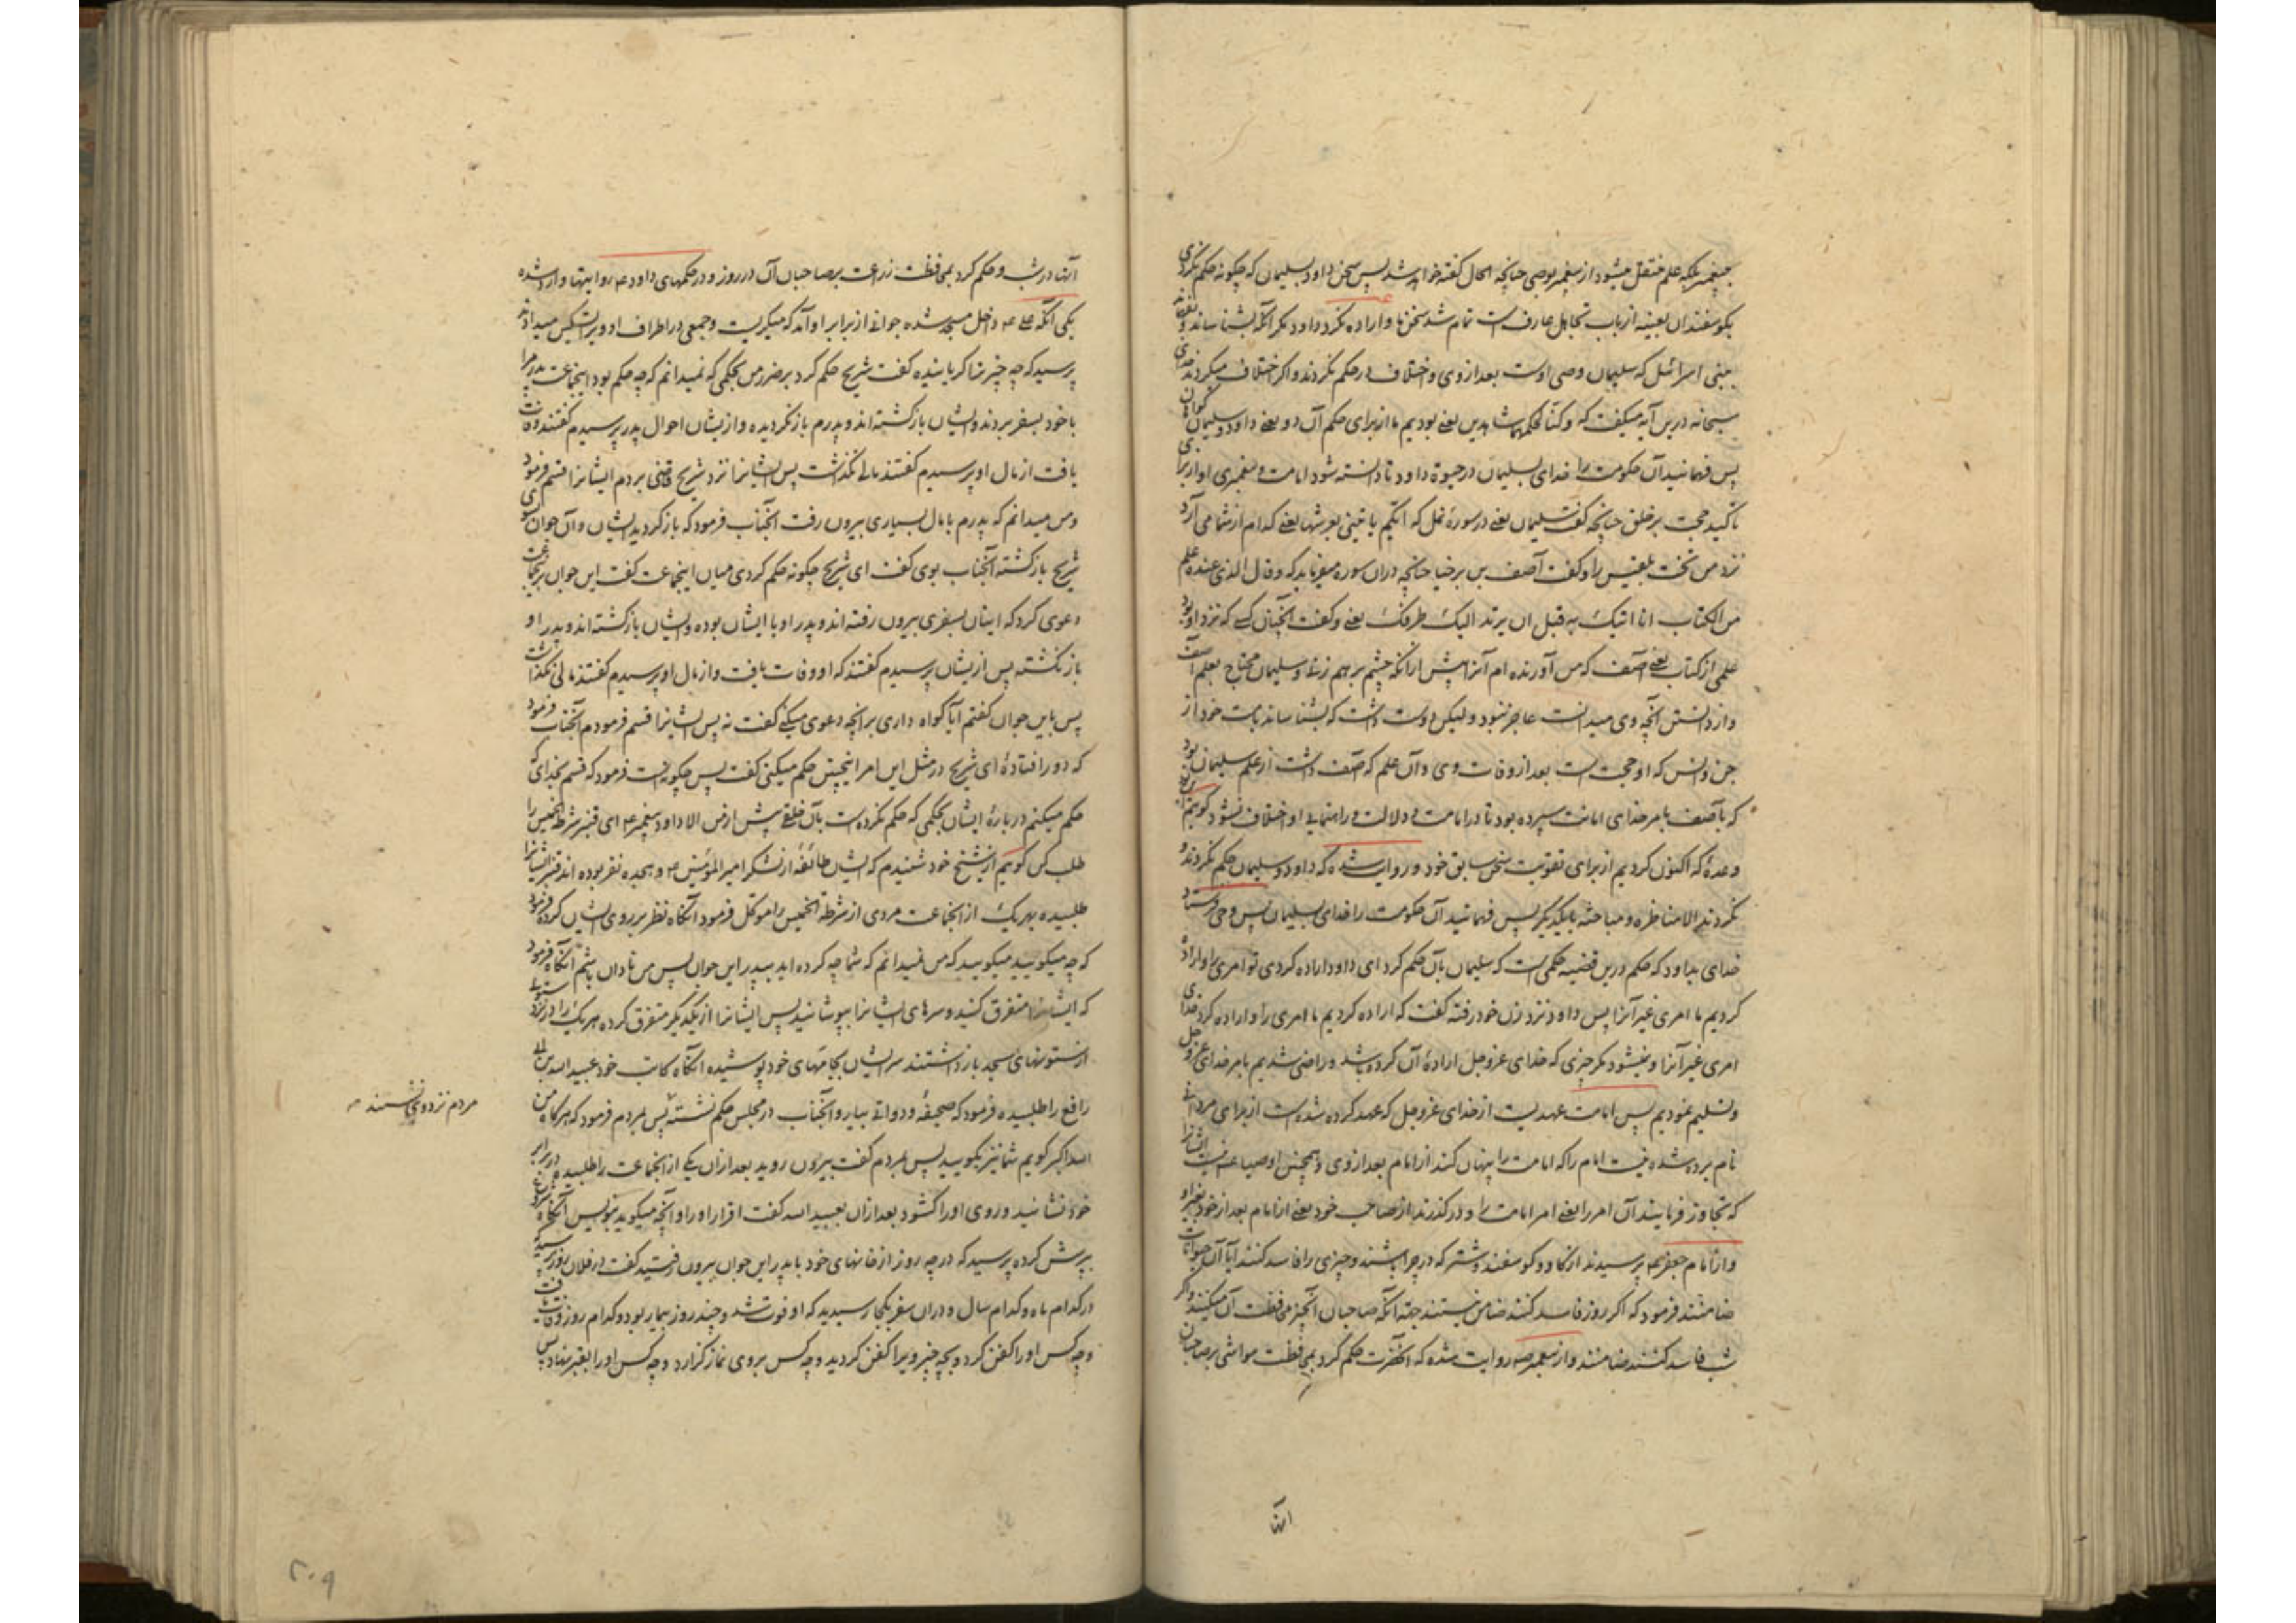 پیغمبر بلکه علم منتقل میشود از پیغمبر بوصی چنانچه الحال گفته خواهد شد پس سخن داود بسلیمان که چگونه حکم نکردی
بگوسفندان بعینه از باب تجاهل عارفست تمام شد سخن ما و اراده نکرد داود مگر آنکه بشناساند
ببنی اسرائیل که سلیمان وصی اوست بعد از وی و اختلاف در حکم نکردند و اگر اختلاف میکردند خدای
سبحانه درین آیه میگفت که و کنا لحکمهما شاهدین یعنی بودیم ما از برای حکم آن دو یعنی داود و سلیمان گواهان
پس فهمانید آن حکومت را خدای بسلیمان در حیوة داود تا دانسته شود امامت و پیغمبری او از برای
تأکید حجت بر خلق چنانچه گفت سلیمان یعنی در سورهٔ نمل که ایکم یأتینی بعرشها یعنی کدام از شما می آرد
نزد من تخت بلقیس را و گفت آصف بن برخیا چنانچه در آن سوره میفرماید که و قال الذی عنده علم
من الکتاب انا اتیک به قبل ان یرتد الیک طرفک یعنی و گفت آنچنان کسی که نزد او بود
علمی از کتاب یعنی آصف که من آورنده ام آنرا پیش از آنکه چشم بر هم زنی و سلیمان محتاج بعلم آصف
و از دانستن آنچه وی میدانست عاجز نبود و لیکن دوست داشت که بشناساند بامت خود از
جن و انس که او حجت است بعد از وفات وی و آن علم که آصف داشت از علم سلیمان بود
که بآصف بامر خدای امانت سپرده بود تا در امامت و دلالت و راهنمایی او اختلاف نشود گوئیم
وعدهٔ که اکنون کردیم از برای تقویت سخن سابق خود و روایت شده که داود و سلیمان حکم نکردند و
نکردند الا مناظره و مباحثه با یکدیگر پس فهمانید آن حکومت را خدای بسلیمان پس وحی فرستاد
خدای بداود که حکم درین قضیه حکمی است که سلیمان بآن حکم کرد ای داود اراده کردی تو امری را و اراده
کردیم ما امری غیر آنرا پس داود نزد زن خود رفته گفت که اراده کردیم ما امری را و اراده کرد خدای
امری غیر آنرا و نمیشود مگر چیزی که خدای عز و جل ارادهٔ آن کرده باشد و راضی شدیم بامر خدای عز و جل
و تسلیم نمودیم پس امامت عهدیست از خدای عز و جل که عهد کرده شده است از برای مردانی
نام برده شده نیست امام را که امامت را پنهان کند از امام بعد از وی و همچنین اوصیا نیست ایشانرا
که تجاوز فرمایند آن امر را یعنی امر امامت را و در گذرند از صاحب خود یعنی از امام بعد از خود بغیر او
و از امام جعفر ع پرسیدند از گاو و گوسفند و شتر که در چرا باشند و چیزی را فاسد کنند آیا آن حیوانات
ضامنند فرمود که اگر روز فاسد کنند ضامن نیستند چه آنکه صاحبان آنچیز محافظت آن میکنند و اگر
شب فاسد کنند ضامنند و از پیغمبر ص روایت شده که آنحضرت حکم کرد بمحافظت مواشی بر صاحبان
آنها
آنها در شب و حکم کرد بمحافظت زراعت بر صاحبان آن در روز و در حکمهای داود ع روایتها وارد شده
یکی آنکه علی ع داخل مسجد شده جوانی از برابر او آمد که میگریست و جمعی در اطراف او ویرا تسکین میدادند
پرسید که چه چیز ترا گریانیده گفت شریح حکم کرد بر ضرر من بحکمی که نمیدانم که چه حکم بود اینجماعت پدر مرا
با خود بسفر بردند و ایشان بازگشته اند و پدرم باز نگردیده و از یشان احوال پدر پرسیدم گفتند وفات
یافت از مال او پرسیدم گفتند مالی نگذاشت پس ایشانرا نزد شریح قاضی بردم ایشانرا قسم فرمود
و من میدانم که پدرم با مال بسیاری بیرون رفت آنجناب فرمود که باز گردید ایشان و آن جوان سوی
شریح بازگشته آنجناب بوی گفت ای شریح چگونه حکم کردی میان اینجماعت گفت این جوان بر اینجماعت
دعوی کرد که اینان بسفری بیرون رفته اند و پدر او با ایشان بوده و ایشان بازگشته اند و پدر او
باز نگشته پس از یشان پرسیدم گفتند که او وفات یافت و از مال او پرسیدم گفتند مالی نگذاشت
پس باین جوان گفتم آیا گواه داری بر آنچه دعوی میکنی گفت نه پس ایشانرا قسم فرمودم آنجناب فرمود
که دور افتادهٔ ای شریح در مثل این امر اینچنین حکم میکنی گفت پس چگونه است فرمود که قسم بخدای که
حکم میکنم در بارهٔ ایشان بحکمی که حکم نکرده است بآن خلقی پیش از من الا داود پیغمبر ع ای قنبر شرطة الخمیس را
طلب کن گوئیم از شیخ خود شنیدم که ایشان طائفهٔ از لشکر امیر المؤمنین ع و هجده نفر بوده اند قنبر ایشانرا
طلبیده بهر یک از آنجماعت مردی از شرطة الخمیس را موکل فرمود آنگاه نظر بر روی ایشان کرده فرمود
که چه میگویید میگویید که من نمیدانم که شما چه کرده اید بپدر این جوان پس من نادان باشم آنگاه فرمود
که ایشانرا متفرق کنید و سرهای ایشانرا بپوشانید پس ایشانرا از یکدیگر متفرق کرده هر یک را در نزد ستونی
از ستونهای مسجد باز داشتند سر ایشان بجامهای خود پوشیده آنگاه کاتب خود عبید الله بن ابی
رافع را طلبیده فرمود که صحیفهٔ و دواتی بیار و آنجناب در مجلس حکم نشسته پس بمردم فرمود که هرگاه من
مردم نزد وی نشستند
الله اکبر گویم شما نیز بگویید پس بمردم گفت بیرون روید بعد از آن یکی از آنجماعت را طلبیده در برابر
خود نشانید و روی او را گشود بعد از آن بعبید الله گفت اقرار او را و آنچه میگوید بنویس آنگاه شروع
بپرسش کرده پرسید که در چه روز از خانهای خود با پدر این جوان بیرون رفتید گفت در فلان روز پرسید
در کدام ماه و کدام سال و در آن سفر بکجا رسیدید که او فوت شد و چند روز بیمار بود و کدام روز وفات یافت
و چه کس او را کفن کرد و بچه چیز ویرا کفن کردید و چه کس بر وی نماز گزارد و چه کس او را بقبر نهاد پس
۲۰۹